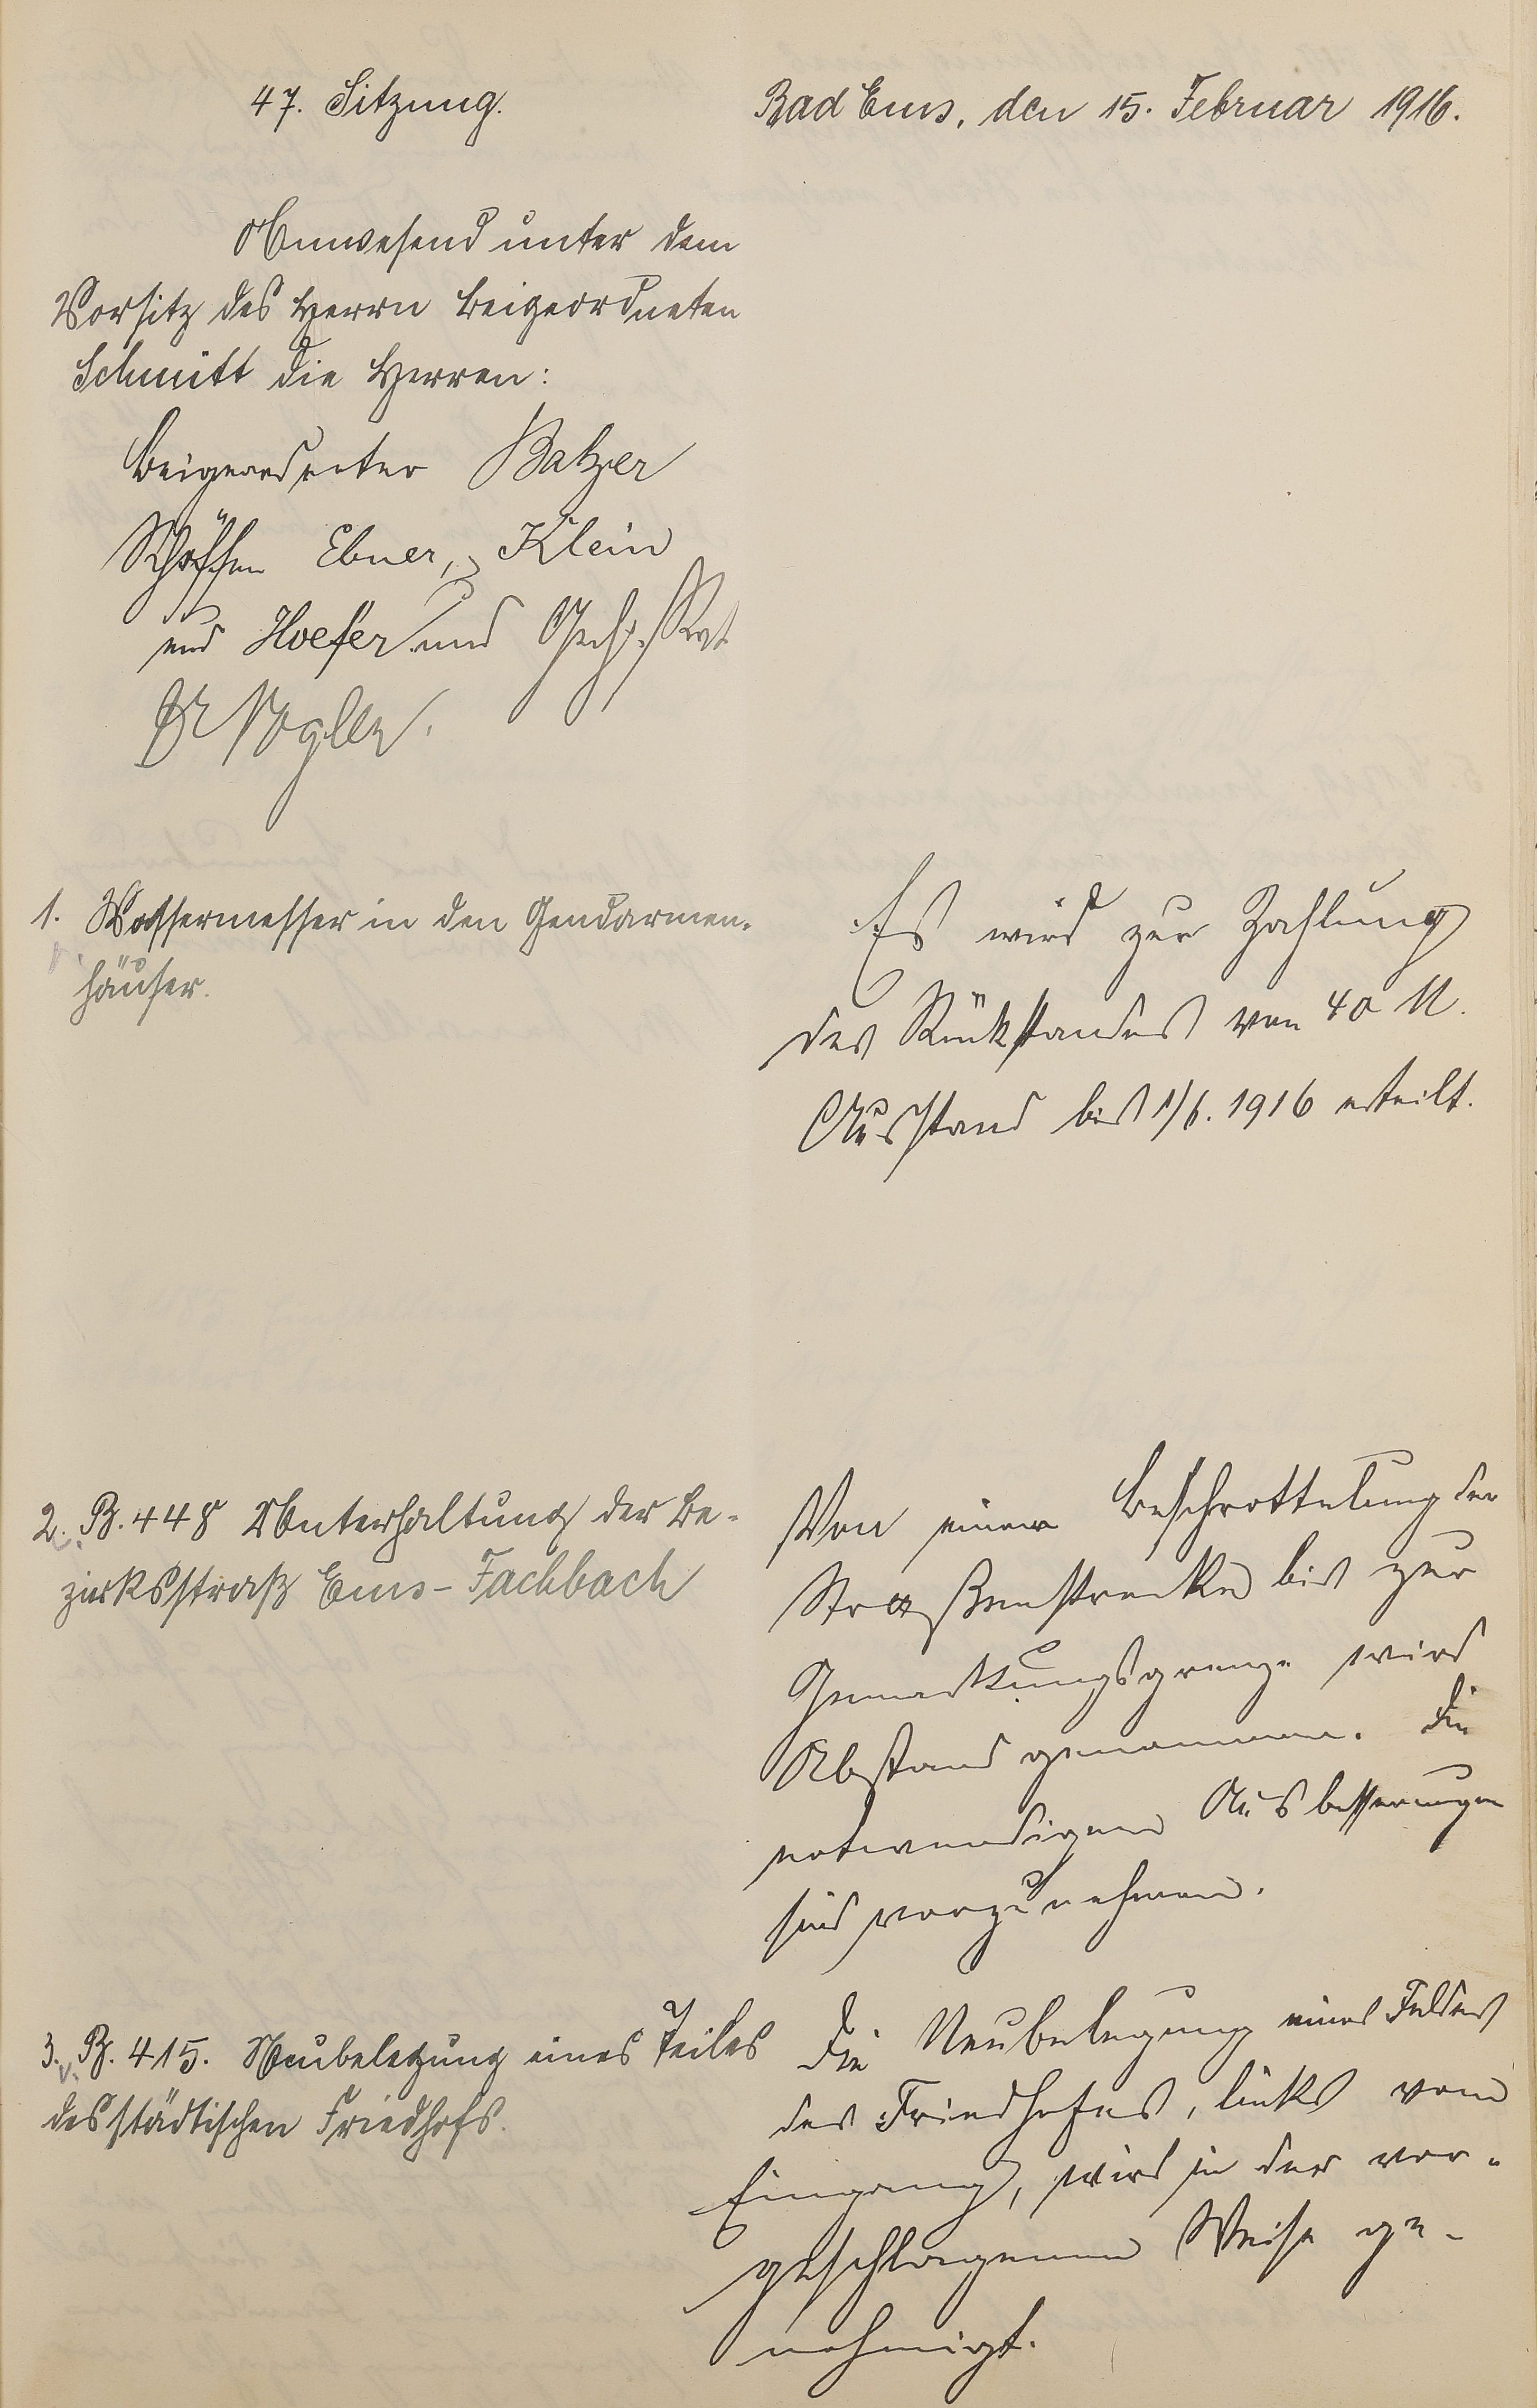 47. Sitzung.
Bad Ems, den 15. Februar 1916.
Anwesend unter dem
Vorsitz des Herrn Beigeordneten
Schmitt die Herren:
Beigeordneter Balzer
Schöffen Ebner, Klein
und Hoefer und Geh. Rat
Dr Vogler.
1. Wassermesser in den Gendarmen-
häuser.
Es wird zur Zahlung
des Rückstandes von 40 M.
Ausstand bis 1/6. 1916 erteilt.
2. B. 448 Unterhaltung der Be-
zirksstraße Ems-Fachbach
Von einer Beschrottelung der
Straßenstrecke bis zur
Gemarkungsgrenze wird
Abstand genommen. Die
notwendigen Ausbesserungen
sind vorzunehmen.
3. B. 415. Neubelegung eines Teiles
des städtischen Friedhofs.
Die Neubelegung eines Feldes
des Friedhofes, links vom
Eingang, wird in der vor-
geschlagenen Weise ge-
nehmigt.